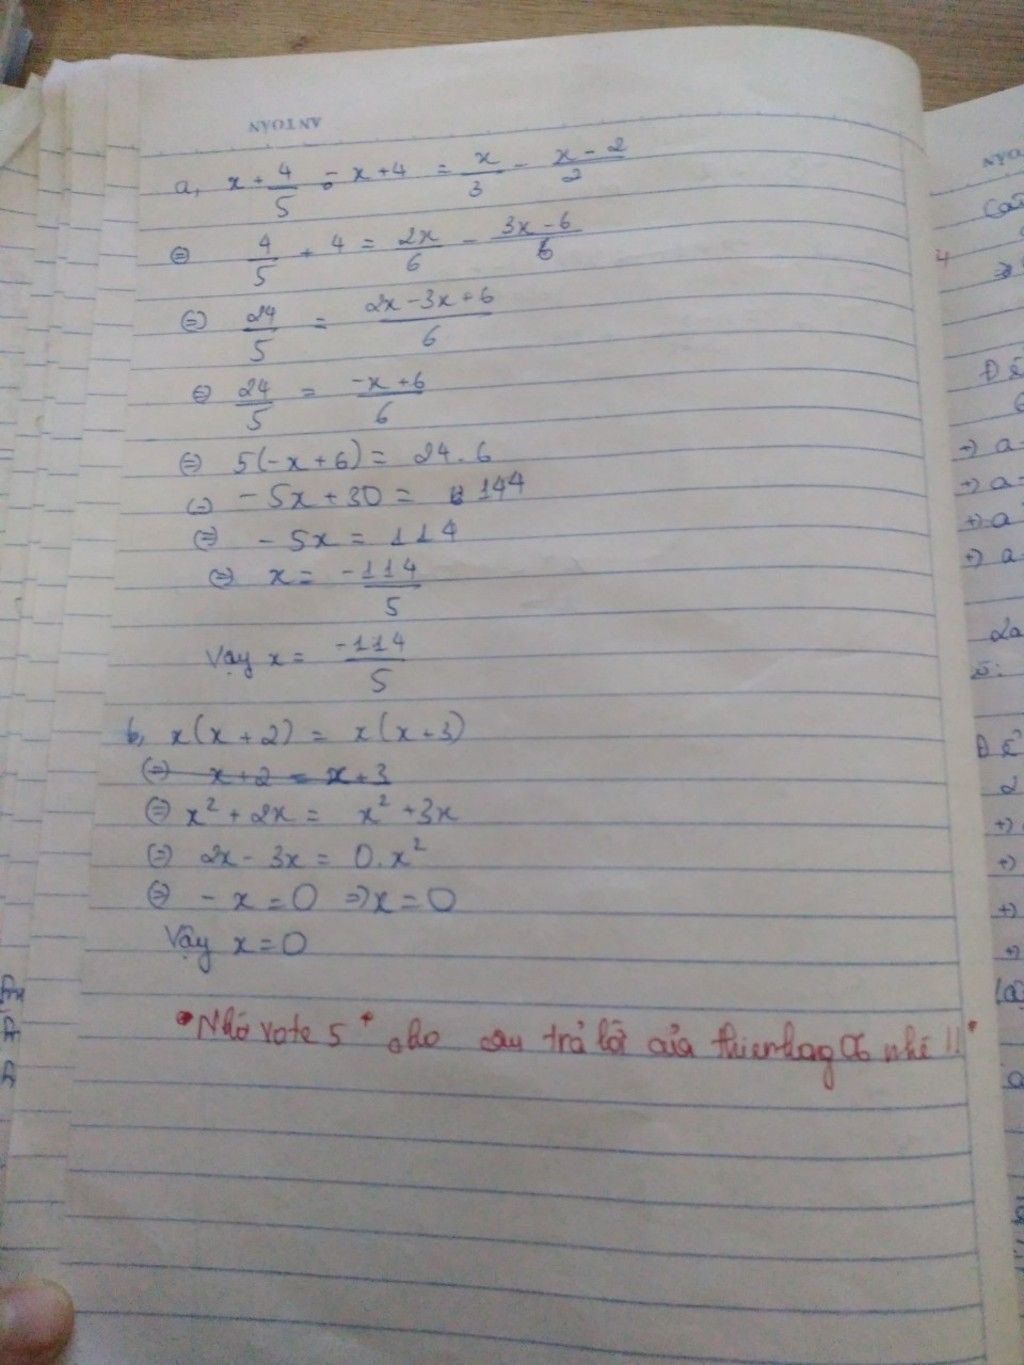 AN TOÀN
a, x + 4/5 - x + 4 = x/3 - x-2/2
⇔ 4/5 + 4 = 2x/6 - 3x-6/6
⇔ 24/5 = 2x-3x+6/6
⇔ 24/5 = -x+6/6
⇔ 5(-x+6) = 24.6
⇔ -5x+30 = 144
⇔ -5x = 114
⇔ x = -114/5
Vậy x = -114/5
b, x(x+2) = x(x+3)
⇔ x+2 = x+3
⇔ x² + 2x = x² + 3x
⇔ 2x - 3x = 0.x²
⇔ -x = 0 ⇒ x = 0
Vậy x = 0
Nhớ vote 5* cho câu trả lời của nhé !!